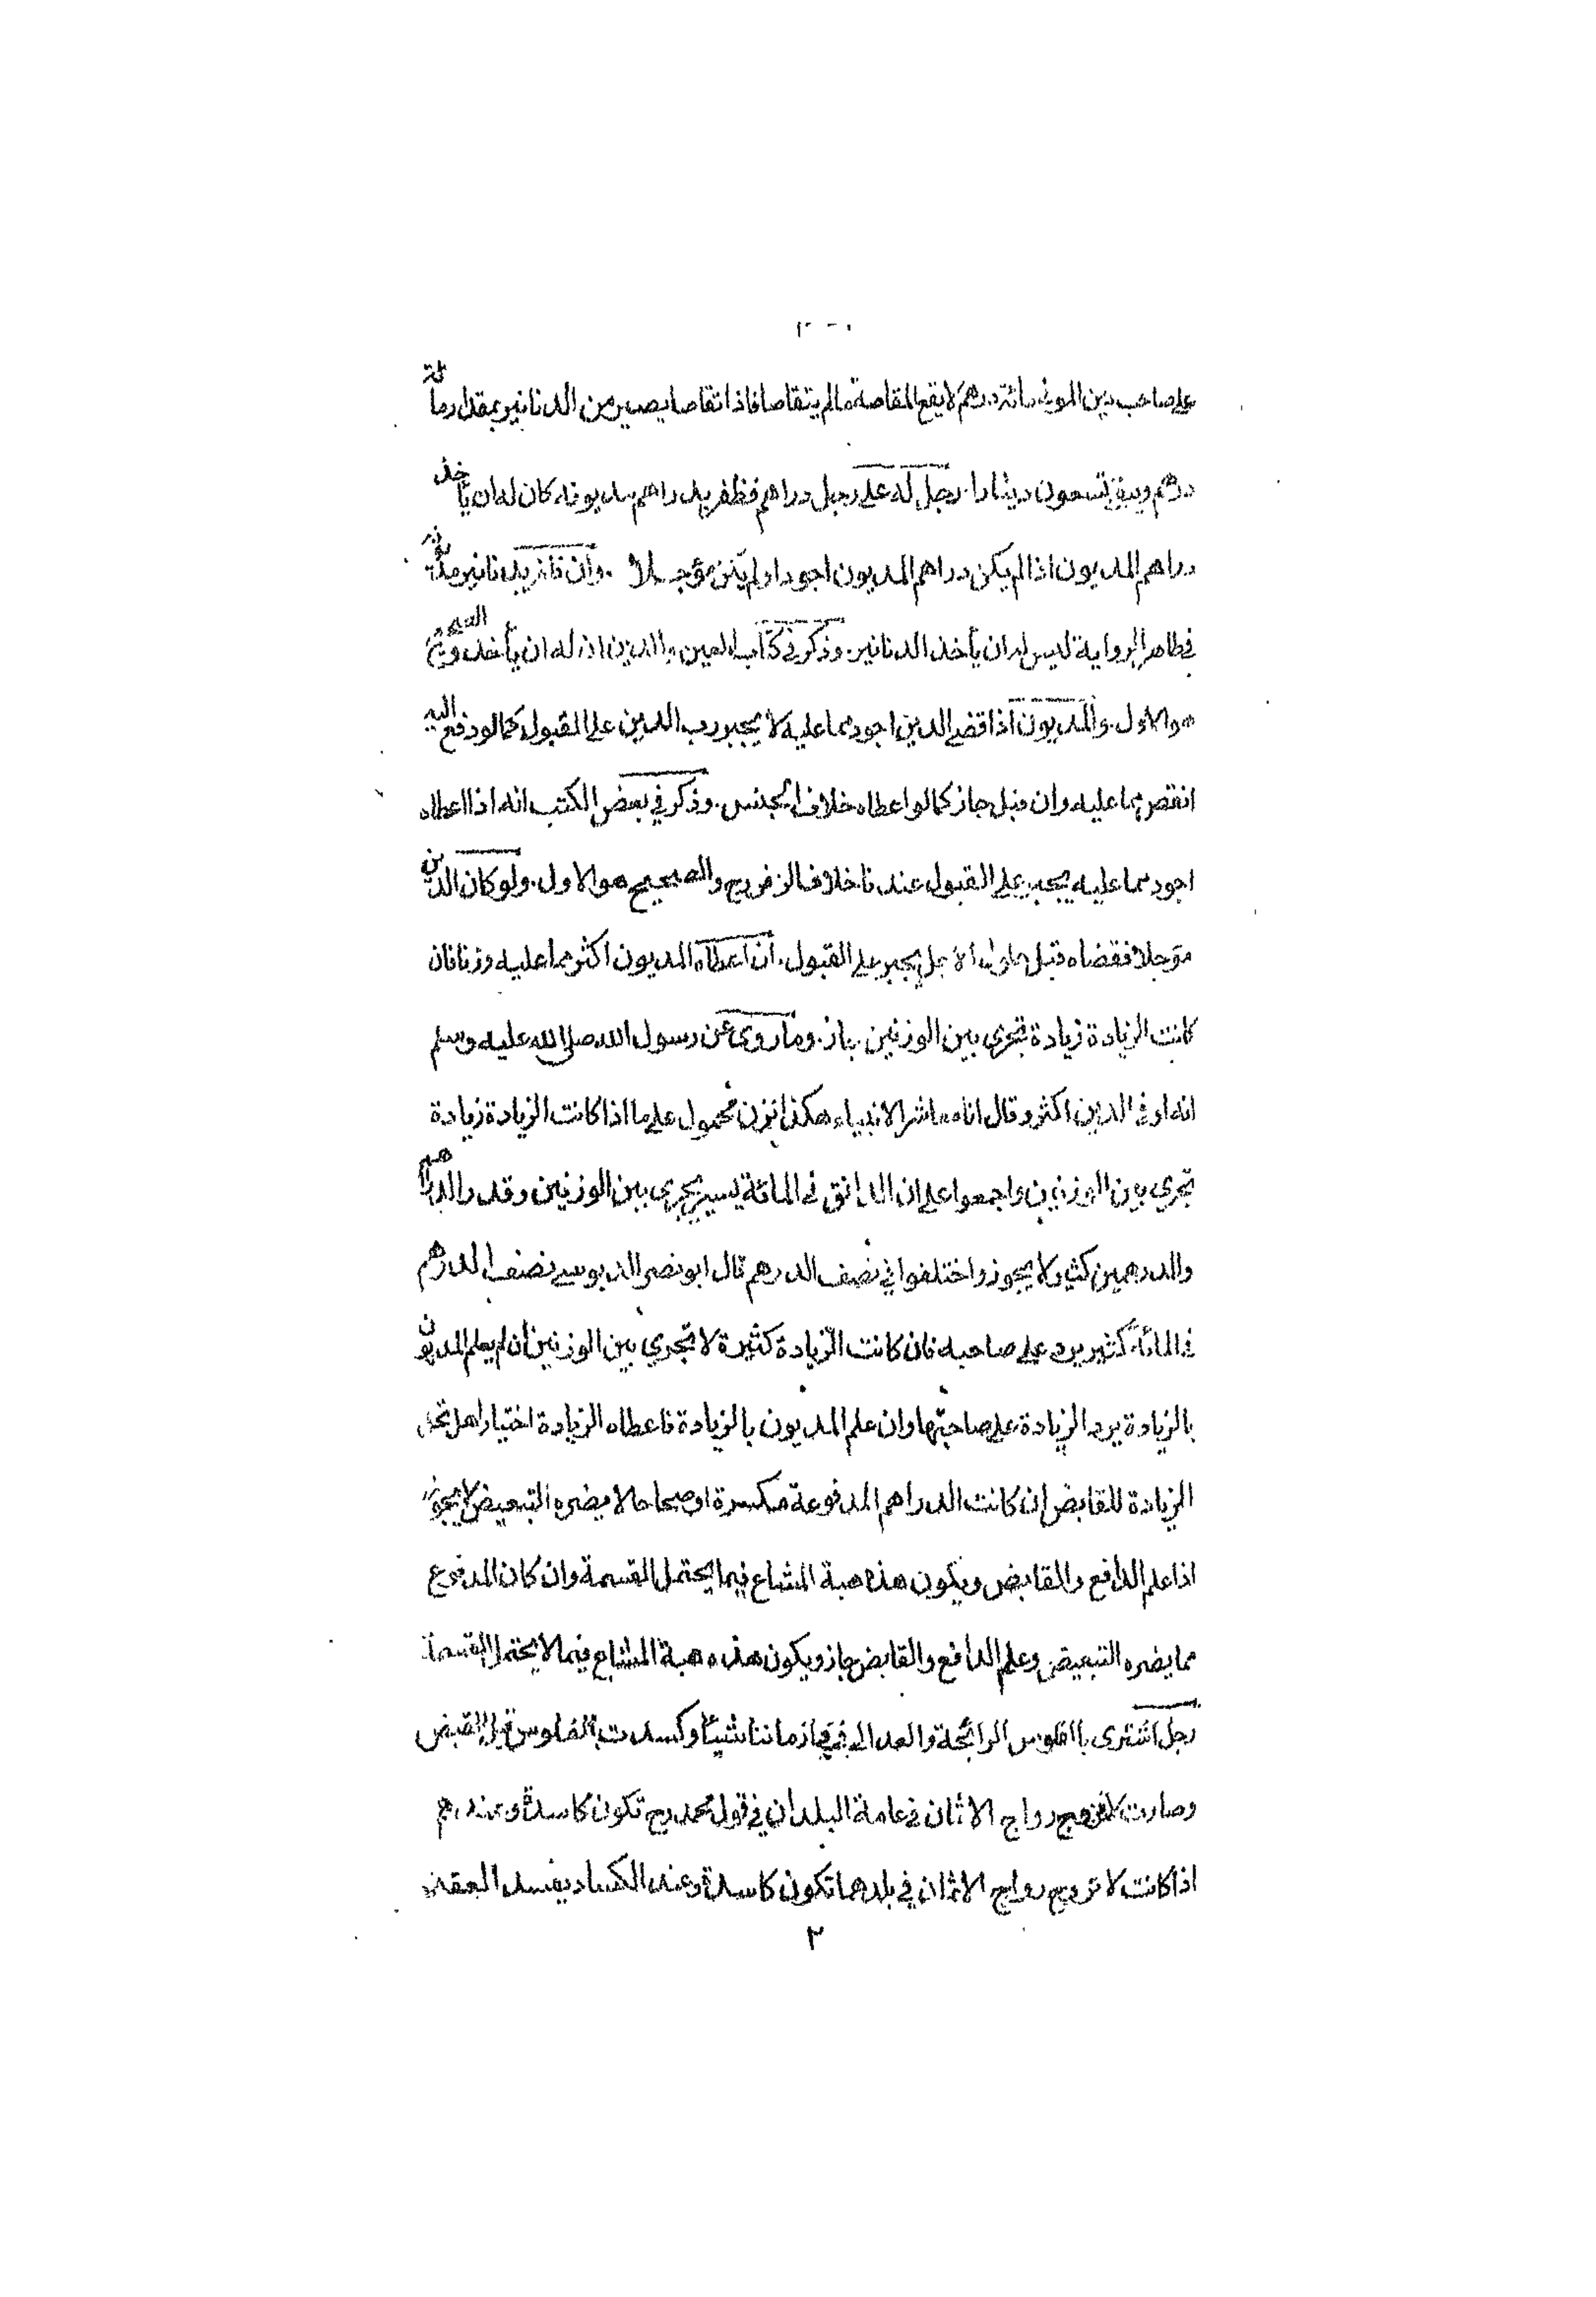 على صاحب دين المديون مائة درهم لا يقع المقاصة مالم يتقاصا فاذا تقاصا يصير من الدنانير بمقدار مائة
درهم ويبقى تسعون دينارا . رجل له على رجل دراهم فظفر بدراهم مديونه كان له ان يأخذ
دراهم المديون اذا لم يكن دراهم المديون اجود او لم يكن مؤجلا . وان ظفر بدنانير مديونه
في ظاهر الرواية ليس له ان يأخذ الدنانير . وذكر في كتاب العين والدين ان له ان يأخذ والصحيح
هو الاول . والمديون اذا قضى الدين اجود مما عليه لا يجبر رب الدين على القبول كما لو دفع اليه
انقص مما عليه وان قبل جاز كما لو اعطاه خلاف الجنس . وذكر في بعض الكتب انه اذا اعطاه
اجود مما عليه يجبر على القبول عندنا خلافا لزفر رح والصحيح هو الاول . ولو كان الدين
مؤجلا فقضاه قبل حلول الاجل يجبر على القبول . ان اعطاه المديون اكثر مما عليه وزنا فان
كانت الزيادة زيادة تجري بين الوزنين جاز . وما روى عن رسول الله صلى الله عليه وسلم
انه اوفى الدين اكثر وقال انا معاشر الانبياء هكذا نزن محمول على ما اذا كانت الزيادة زيادة
تجري بين الوزنين واجمعوا على ان الدانق في المائة يسير يجري بين الوزنين وقدر الدراهم
والدرهمين كثير لا يجوز واختلفوا في نصف الدرهم قال ابو نصر الدبوسي نصف الدرهم
في المائة كثير يرد على صاحبه فان كانت الزيادة كثيرة لا تجري بين الوزنين ان لم يعلم المديون
بالزيادة يرد الزيادة على صاحبها وان علم المديون بالزيادة فاعطاه الزيادة اختيارا هل تحل
الزيادة للقابض ان كانت الدراهم المدفوعة مكسرة او صحاحا لا يضره التبعيض لا يجوز
اذا علم الدافع والقابض ويكون هذا هبة المشاع فيما يحتمل القسمة وان كان المدفوع
مما يضره التبعيض وعلم الدافع والقابض جاز ويكون هذه هبة المشاع فيما لا يحتمل القسمة
رجل اشترى بالفلوس الرائجة والعدالي في زماننا شيئا وكسدت الفلوس قبل القبض
وصارت لا تروج رواج الاثمان في عامة البلدان في قول محمد رح تكون كاسدة وعندهم
اذا كانت لا تروج رواج الاثمان في بلدهما تكون كاسدة وعند الكساد يفسد العقد
٢